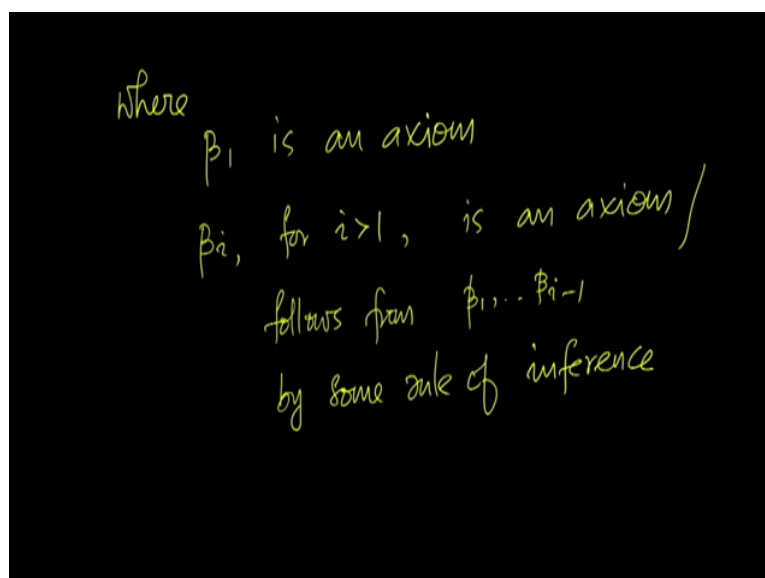 where
β₁ is an axiom
βi, for i>1, is an axiom/
follows from β₁,... βi-1
by some rule of inference